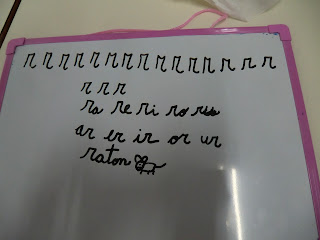 r r r r r r r r r r r r r r r r
r r r
ra re ri ro ru
ar er ir or ur
raton